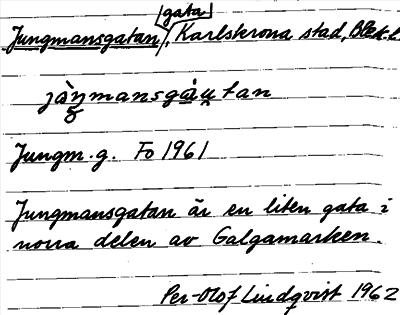 gata
Jungmansgatan, Karlskrona stad, Blek. l.
Jungm.g. Fo 1961
Jungmansgatan är en liten gata i
norra delen av Galgamarken.
Per-Olof Lindqvist 1962